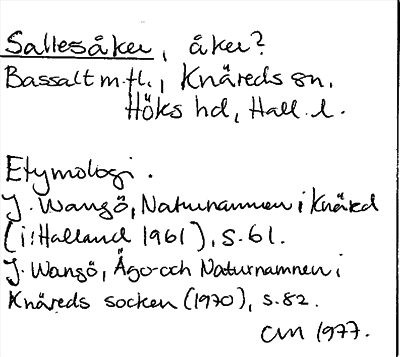 Sallesåker, åker?
Bassalt m.fl., Knäreds sn,
Höks hd, Hall. l.
Etymologi.
J. Wangö, Naturnamnen i Knäred
(i: Halland 1961), s. 61.
J. Wangö, Ägo- och Naturnamnen i
Knäreds socken (1970), s. 82.
CM 1977.